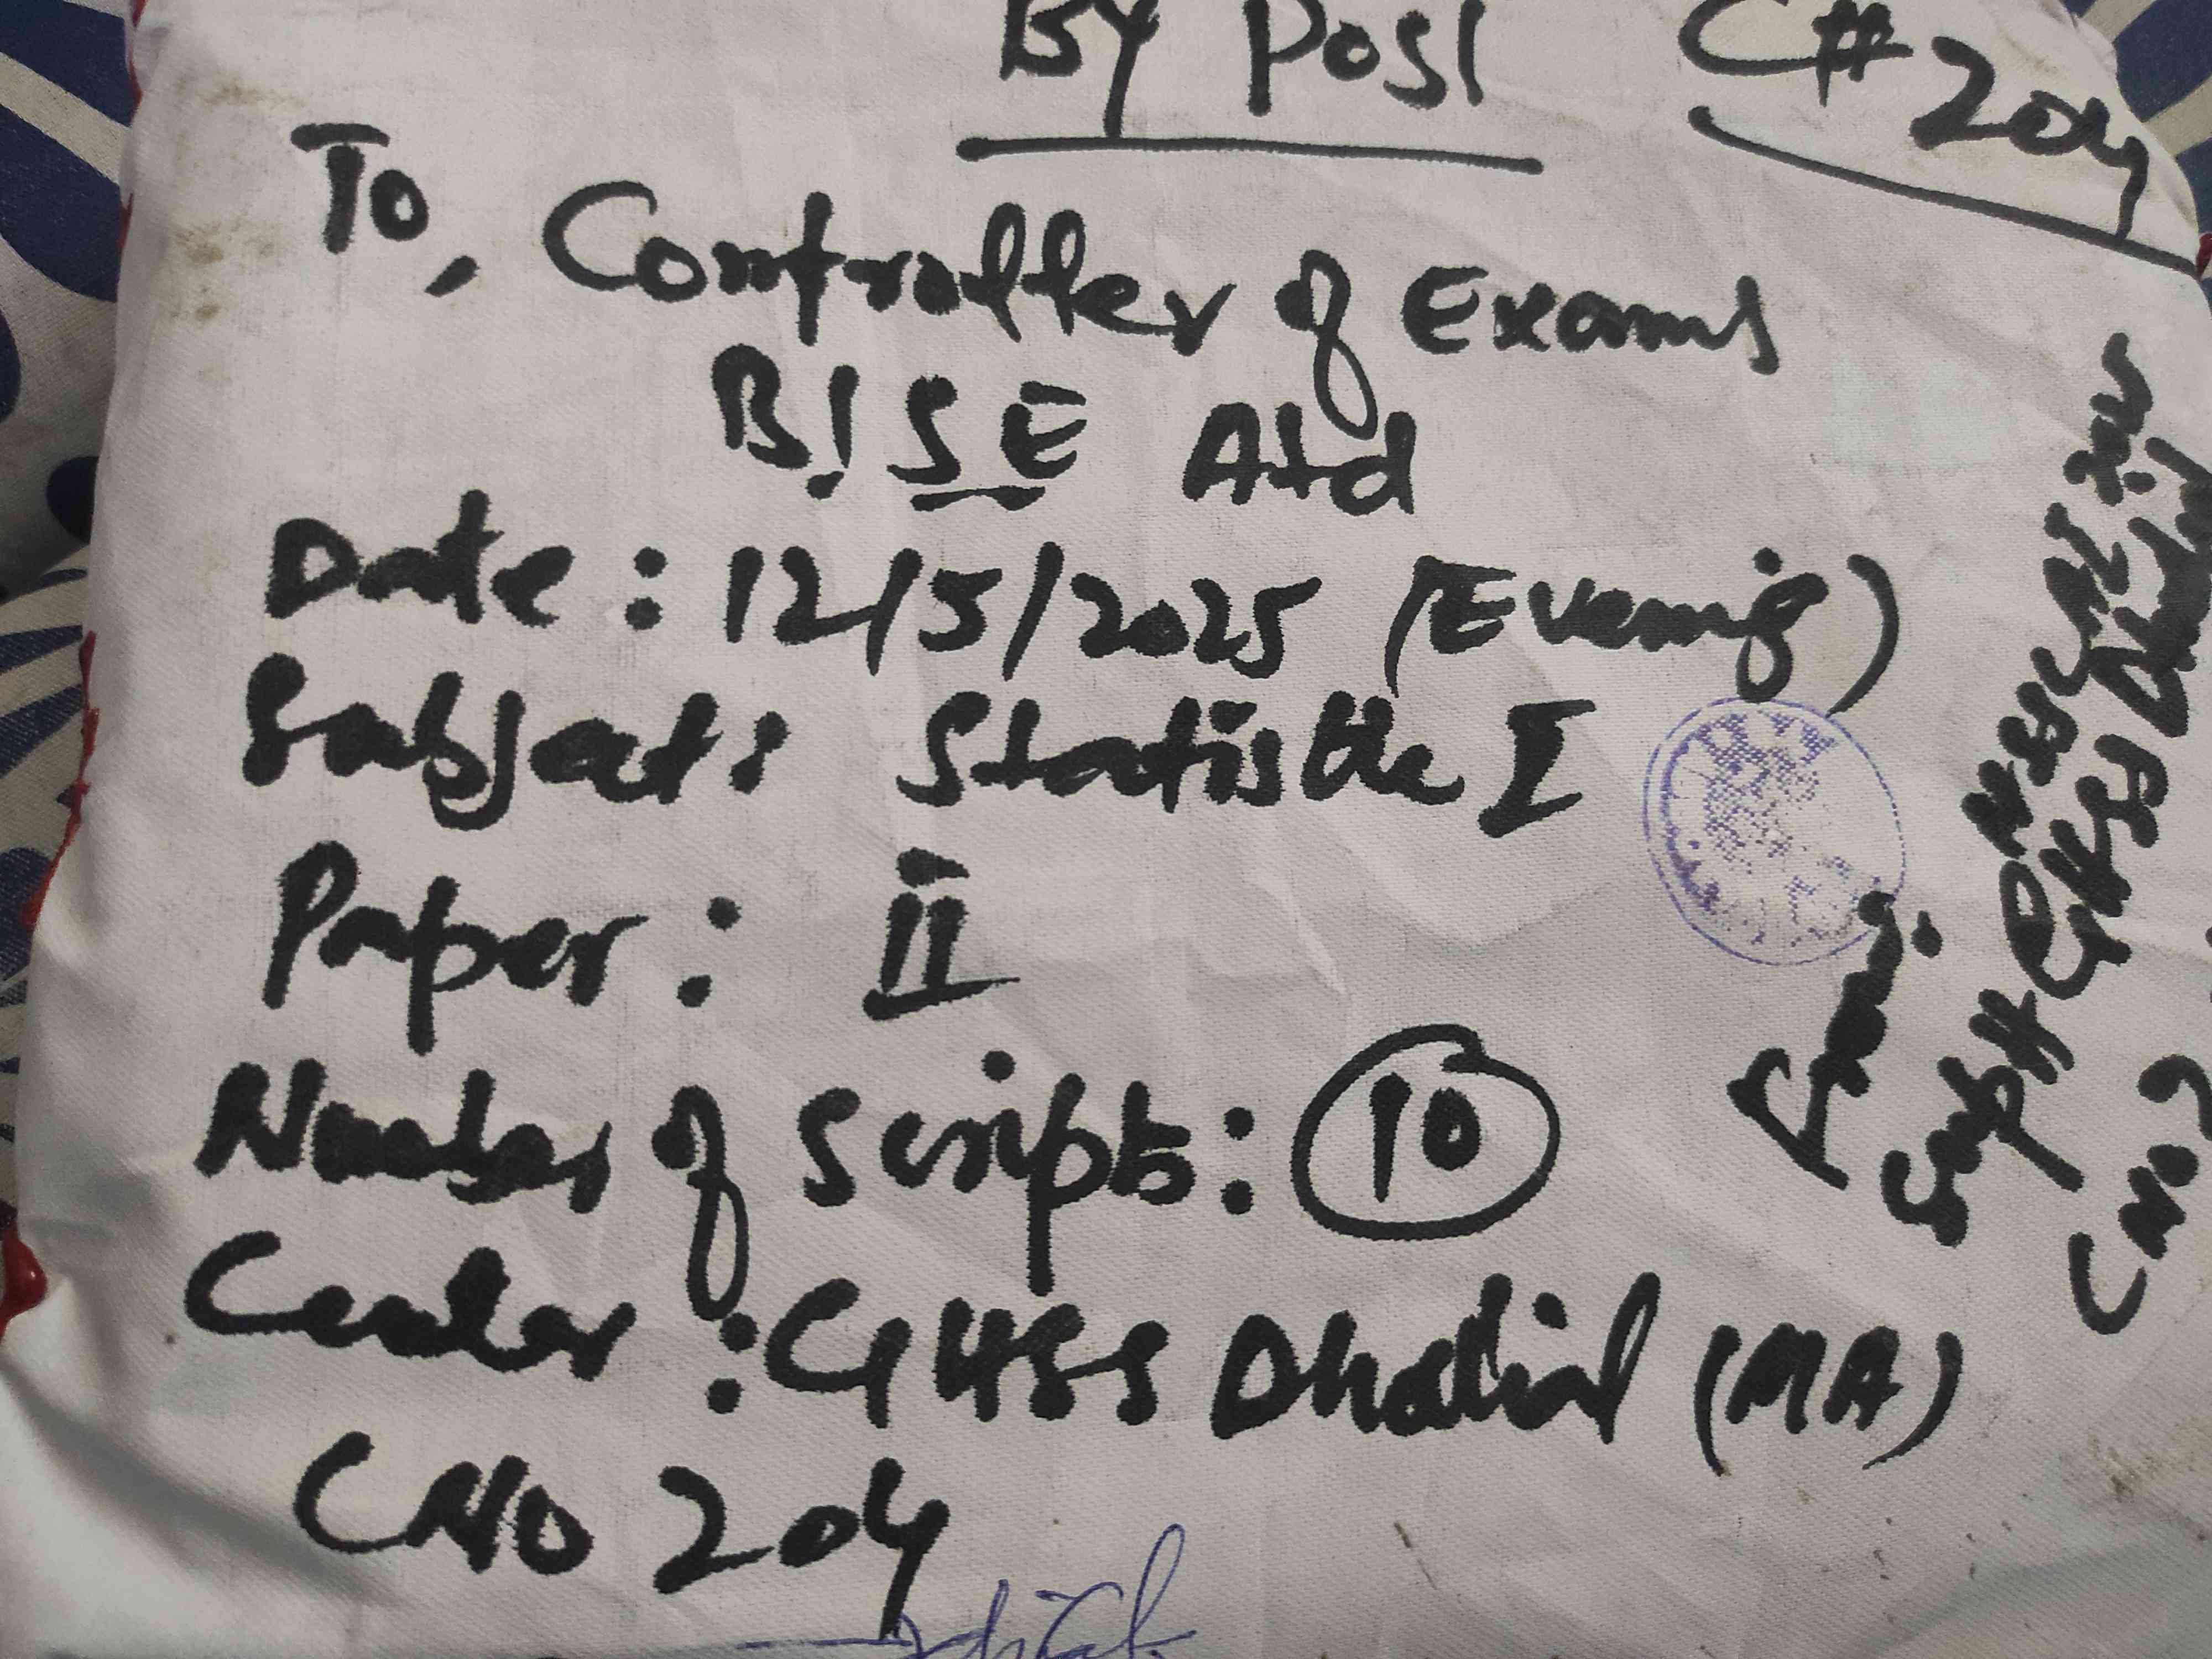 By Post C# 204
To, Controller of Exams
B.I.S.E Atd
Date: 12/5/2025 (Evening)
Subject: Statistic I
Paper: II
Number of Scripts: 10
Center: GHSS Dhodial (MA)
CNO 204
From:
Supt HSSC AI 2025
GHSS Dhodial
CNO 2